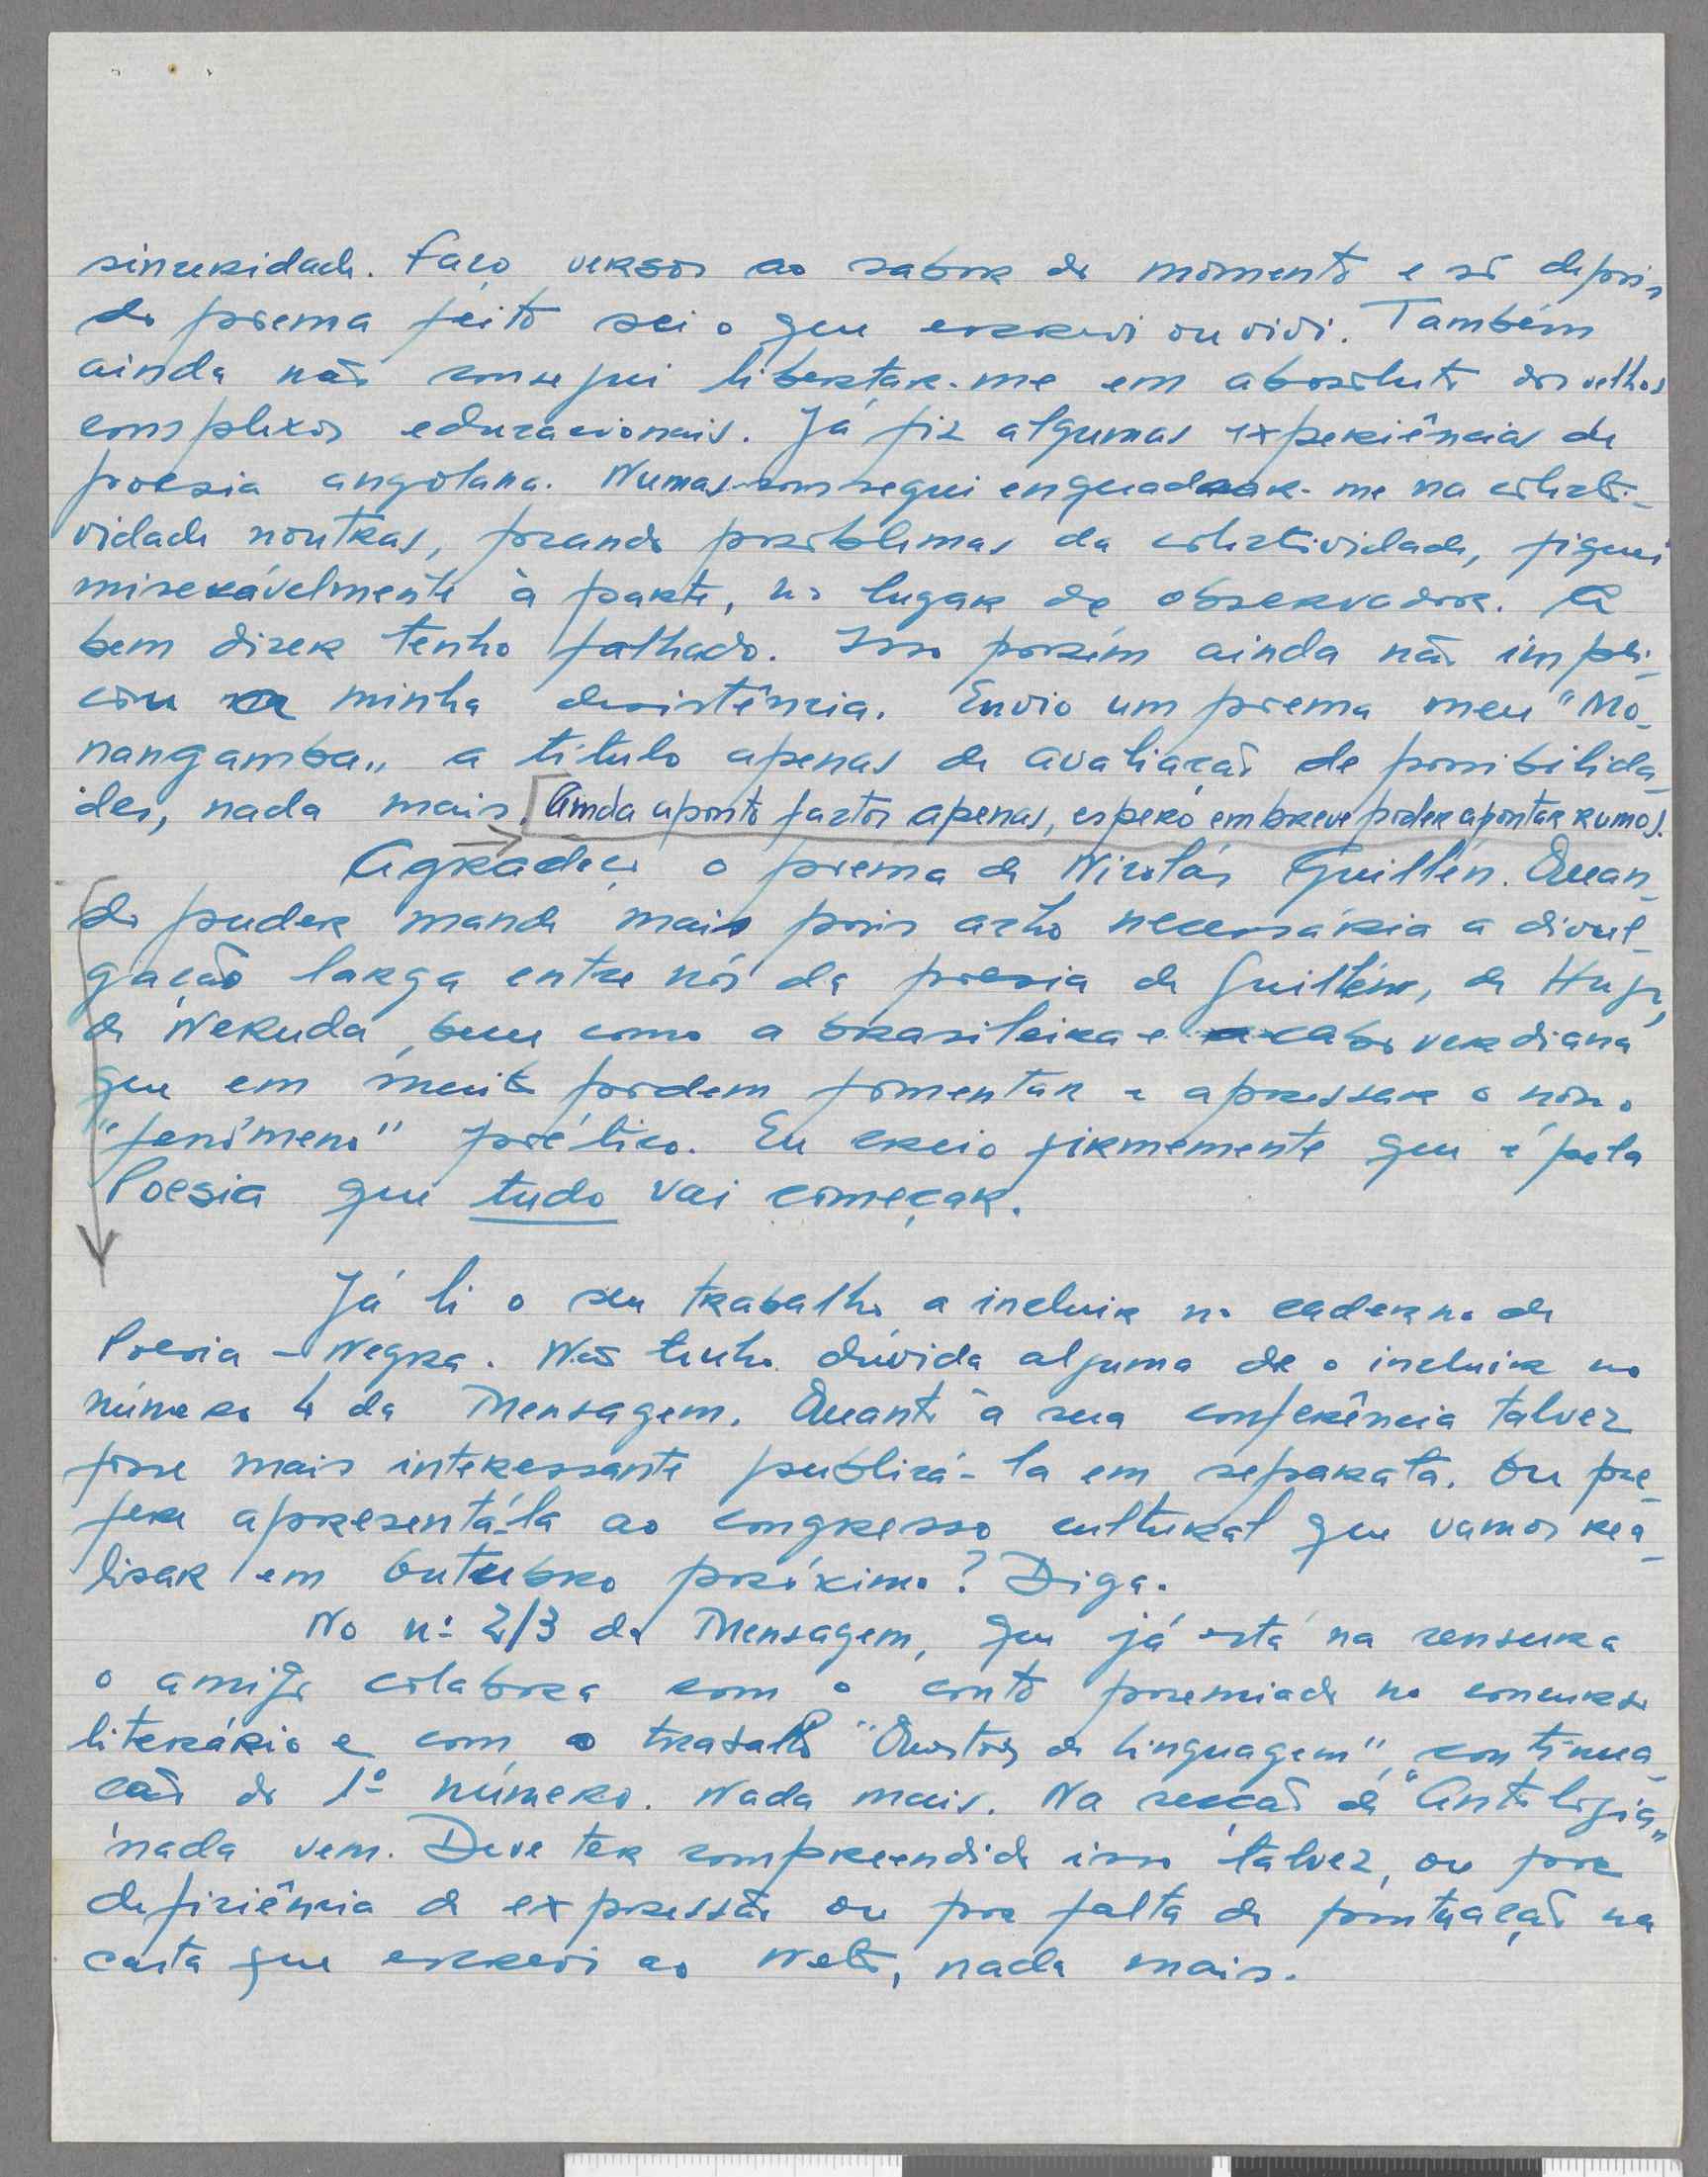 sinceridade. Faço versos ao sabor do momento e só depois
do poema feito sei o que escrevi ou vivi. Também
ainda não consegui libertar-me em absoluto dos velhos
complexos educacionais. Já fiz algumas experiências de
poesia angolana. Numas consegui enquadrar-me na colecti-
vidade noutras, focando problemas da colectividade, fiquei
miserávelmente à parte, no lugar de observador. A
bem dizer tenho falhado. Isso porém ainda não impli-
cou a minha desistência. Envio um poema meu "Mo-
nangamba" a título apenas de avaliação de possibilida-
des, nada mais. Ainda aponto factos apenas, espero em breve poder apontar rumos.
Agradeço o poema de Nicolás Guillén. Quan-
do puder mande mais pois acho necessária a divul-
gação larga entre nós da poesia de Guillén, de Hugs,
de Neruda, bem como a brasileira e a cabo verdiana
que em muito podem fomentar e apressar o nosso
"fenómeno" poético. Eu creio firmemente que é pela
Poesia que tudo vai começar.
Já li o seu trabalho a incluir no caderno de
Poesia - Negra. Não tenho dúvida alguma de o incluir no
número 4 da Mensagem. Quanto à sua conferência talvez
fosse mais interessante publicá-la em separata. Ou pre-
fere apresentá-la ao congresso cultural que vamos rea-
lisar em Outubro próximo? Diga.
No nº 2/3 da Mensagem, que já está na censura
o amigo colabora com o conto premiado no concurso
literário e com o trabalho "Questões de Linguagem", continua-
ção do 1º número. Nada mais. Na secção de "Antologia"
nada vem. Deve ter compreendido isso talvez, ou por
deficiência de expressão ou por falta de pontuação na
carta que escrevi ao Neto, nada mais.